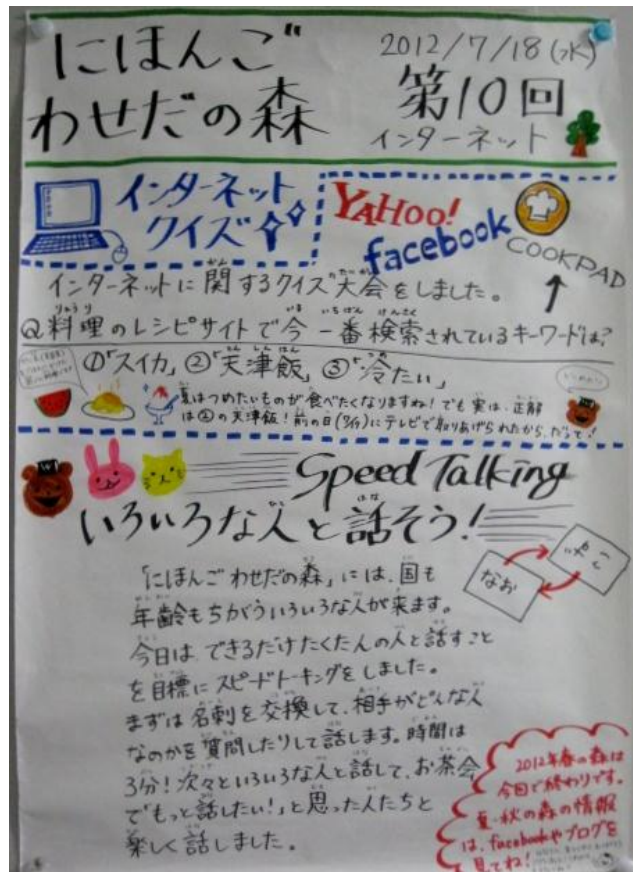 にほんご
わせだの森
2012/7/18(水)
第10回
インターネット
インターネット
クイズ
YAHOO!
facebook
COOKPAD
インターネットに関するクイズ大会をしました。
Q料理のレシピサイトで今一番検索されているキーワードは?
①「スイカ」②「天津飯」③「冷たい」
夏はつめたいものが食べたくなりますね!でも実は、正解
は②の天津飯!前の日(7/17)にテレビで取りあげられたから、だって!
Speed Talking
いろいろな人と話そう!
なお
「にほんごわせだの森」には、国も
年齢もちがういろいろな人が来ます。
今日は、できるだけたくたんの人と話すこと
を目標にスピードトーキングをしました。
まずは名刺を交換して、相手がどんな人
なのかを質問したりして話します。時間は
3分!次々といろいろな人と話して、お茶会
で「もっと話したい!」と思った人たちと
楽しく話しました。
2012年春の森は
今回で終わりです。
夏・秋の森の情報
は、facebookやブログを
見てね!